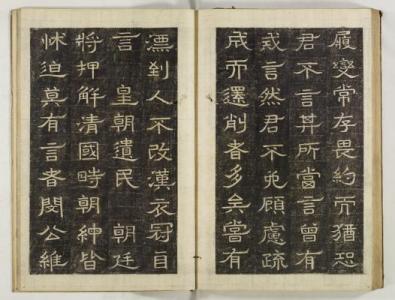 履變常存畏約而猶恐
君不言其所當言曾有
或言然君不免顧慮疏
成而還削者多矣當有
漂到人不改漢衣冠自
言　皇朝遺民　朝廷
將押解清國時朝紳皆
怵迫莫有言者閔公維